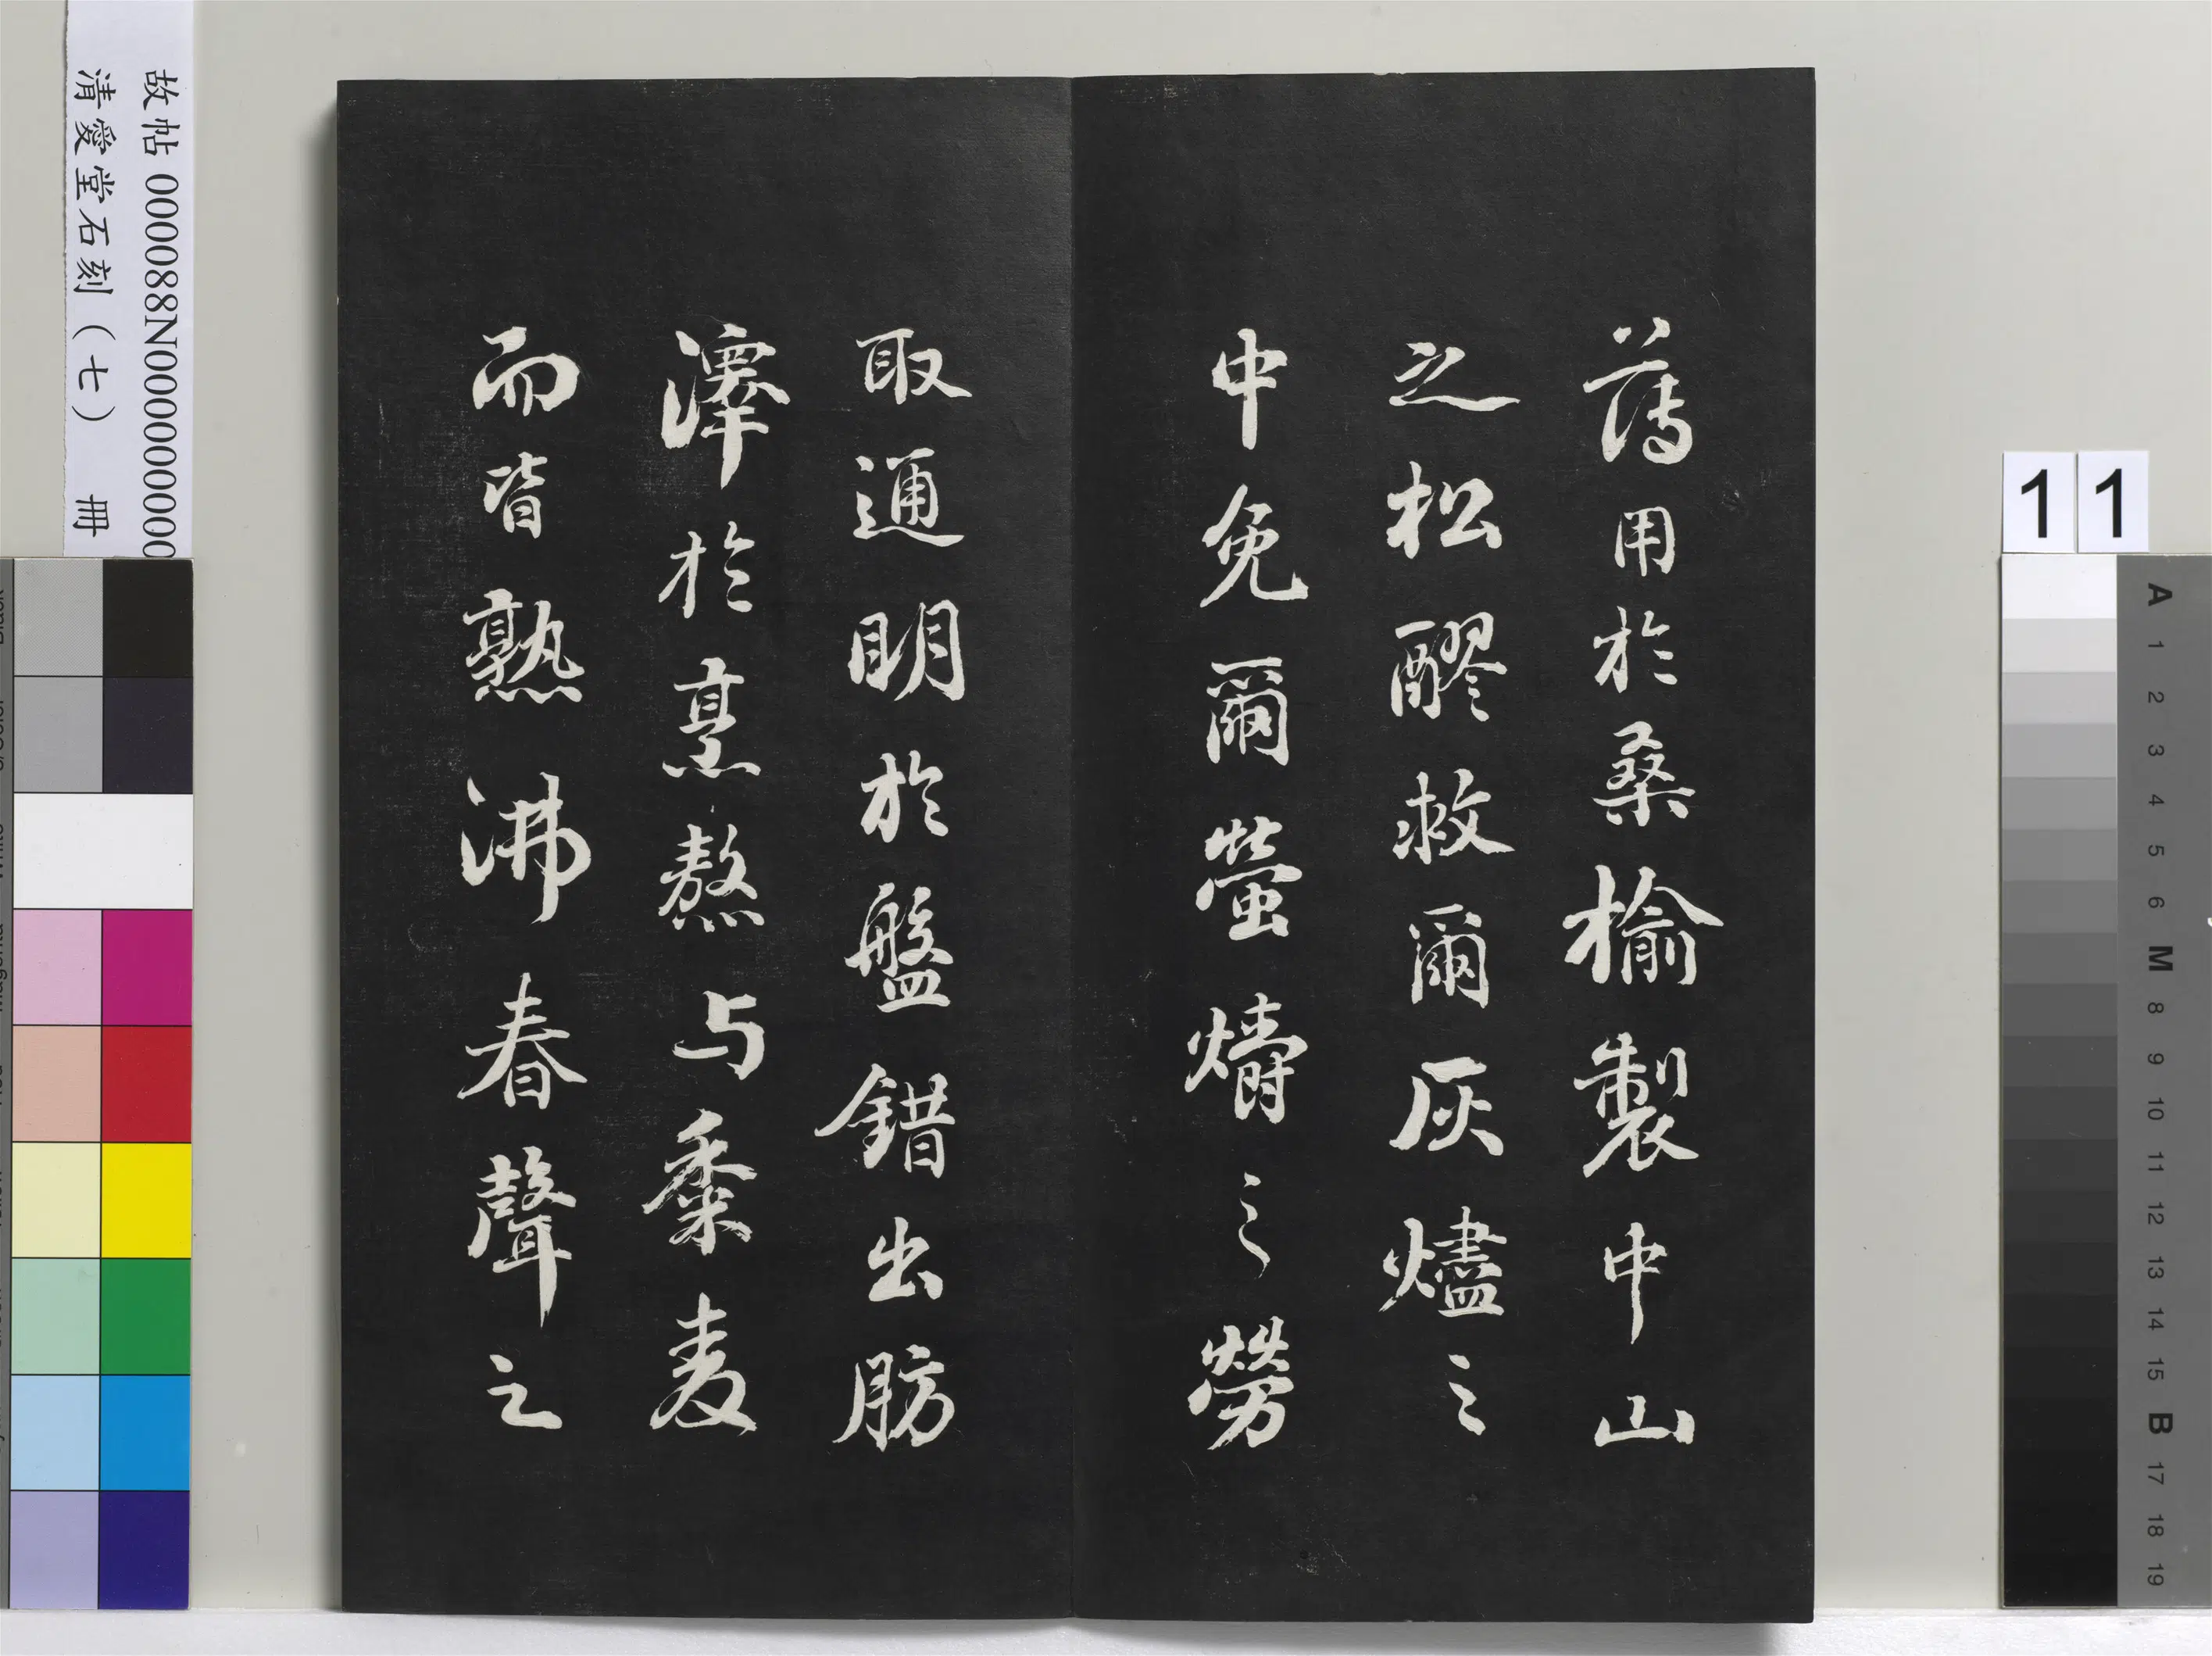 薄用於桑榆製中山
之松醪救爾灰燼之
中免爾螢爝之勞
取通明於盤錯出肪
澤於烹熬与黍麦
而皆熟沸春聲之
故帖 000088N0000000000
清愛堂石刻(七) 冊
11
A
1
2
3
4
5
6
M
8
9
10
11
12
13
14
15
B
17
18
19